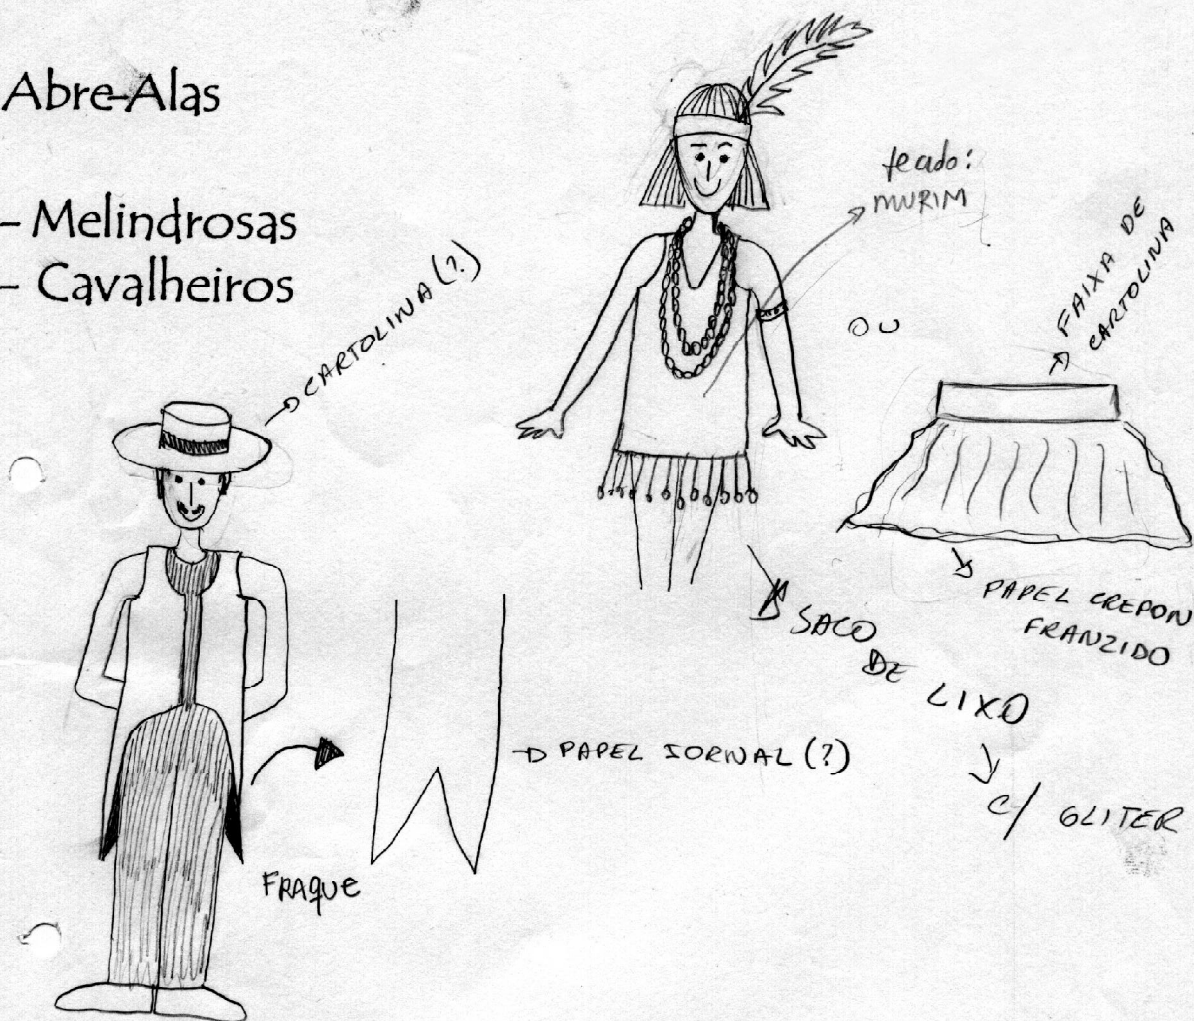 Abre-Alas
– Melindrosas
– Cavalheiros
CARTOLINA (?)
tecido:
MURIM
OU
FAIXA DE
CARTOLINA
PAPEL CREPON
FRANZIDO
SACO
DE LIXO
C/ GLITER
PAPEL JORNAL (?)
FRAQUE